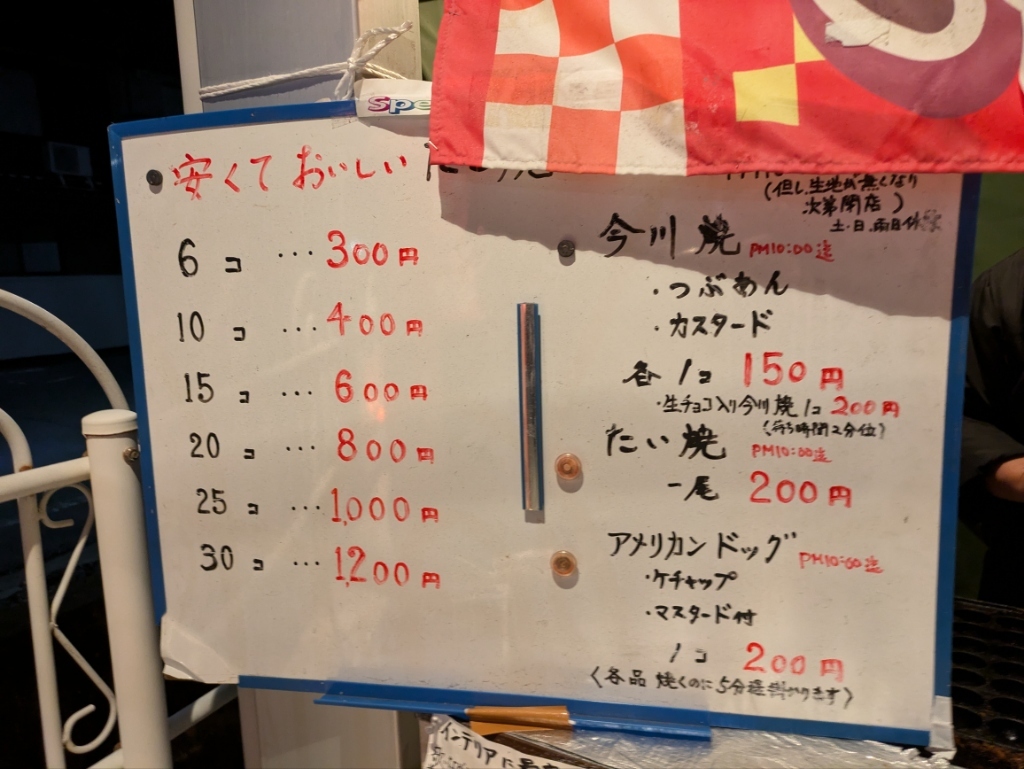 Spe
安くて おいしい
6 コ … 300円
10 コ … 400円
15 コ … 600円
20 コ … 800円
25 コ … 1,000円
30 コ … 1,200円
(但し、生地が無くなり
次第閉店)
土・日、雨日休
今川焼 PM10:00迄
・つぶあん
・カスタード
各 1コ 150円
・生チョコ入り今川焼 1コ 200円
(待ち時間2分位)
たい焼 PM10:00迄
一尾 200円
アメリカンドッグ PM10:00迄
・ケチャップ
・マスタード付
1コ 200円
〈各品 焼くのに5分程掛かります〉
インテリアに